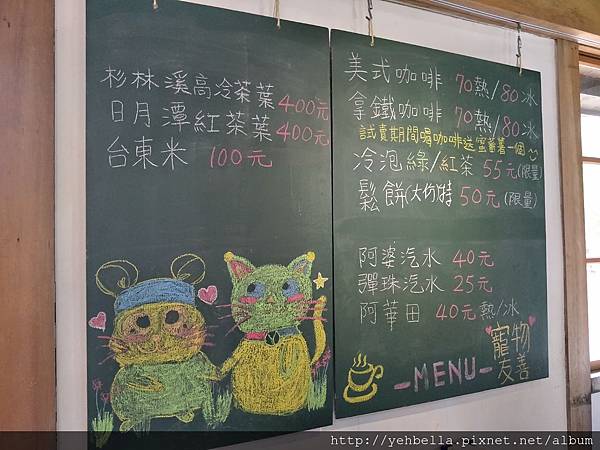 杉林溪高冷茶葉 400元
日月潭紅茶葉 400元
台東米 100元
美式咖啡 70熱/80冰
拿鐵咖啡 70熱/80冰
試賣期間喝咖啡送蜜蕃薯一個
冷泡綠/紅茶 55元(限量)
鬆餅(大份)特 50元(限量)
阿婆汽水 40元
彈珠汽水 25元
阿華田 40元熱/冰
寵物
友善
-MENU-
http://yehbella.pixnet.net/album